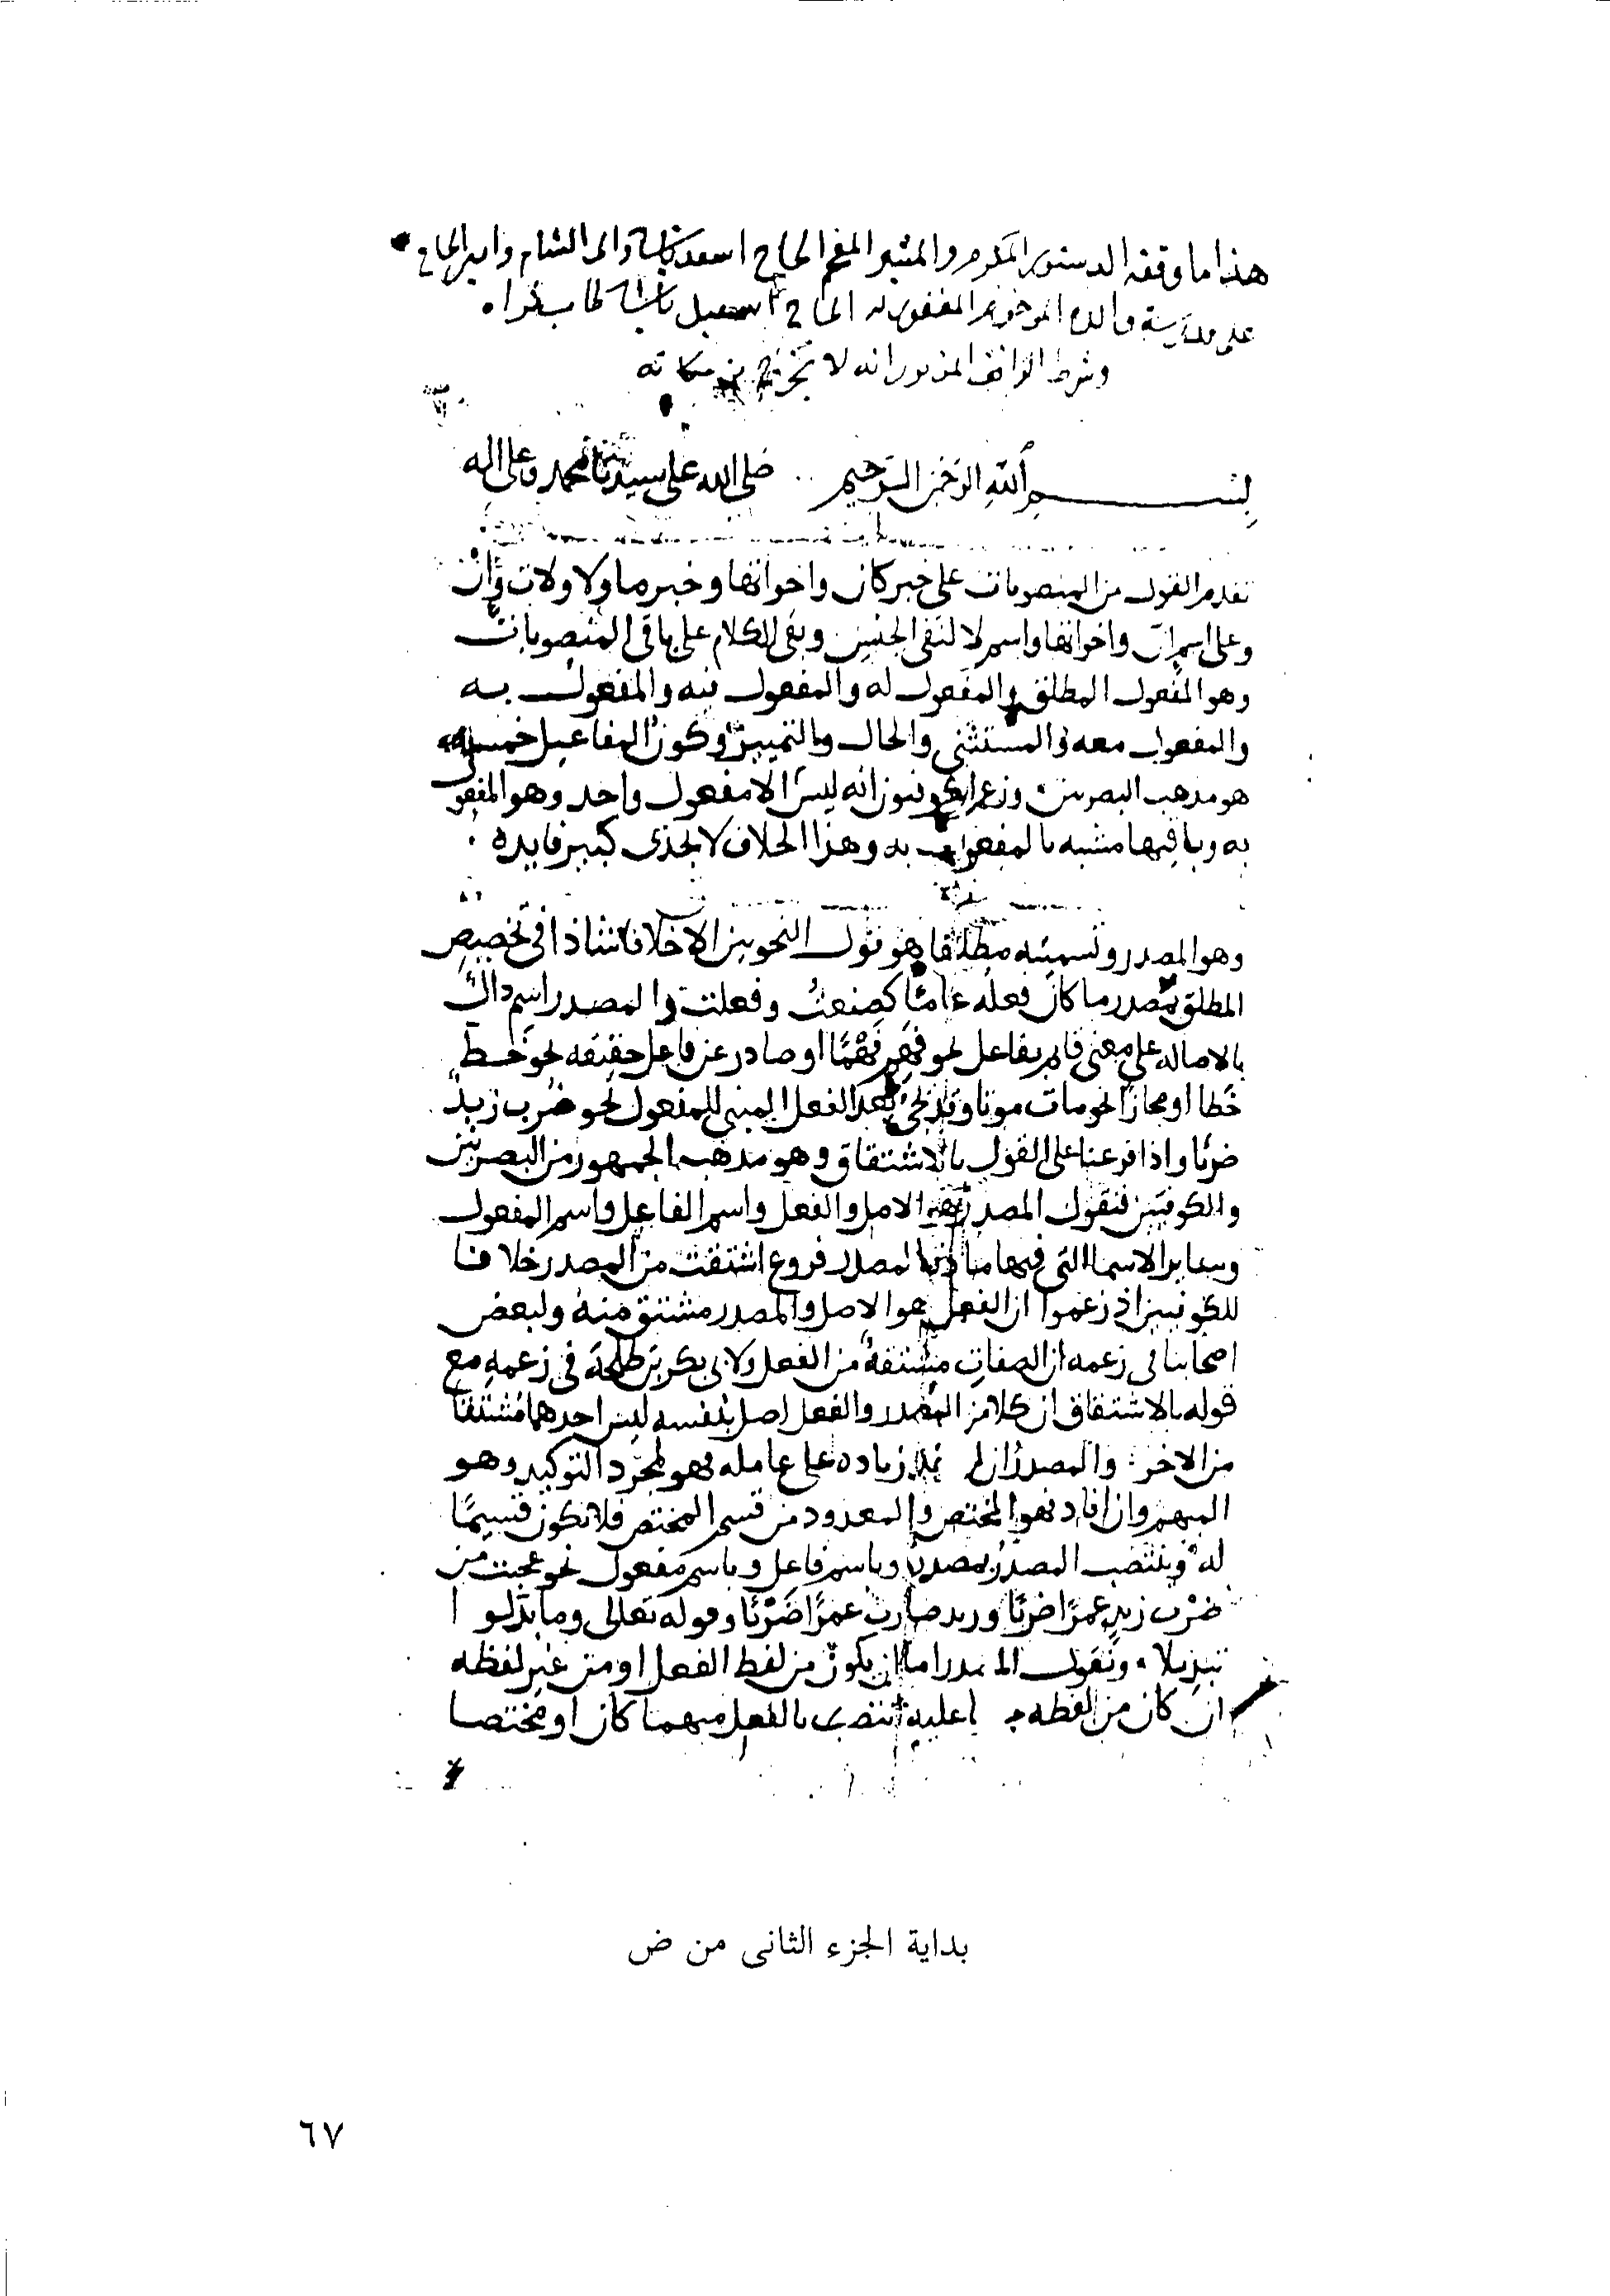 هذا ما وقفه الدستور المكرم والمشير المفخم الحاج اسعد باشا والى الشام وامير الحاج
على مدرسة والده المرحوم المغفور له الحاج اسمعيل باشا طاب ثراه
وشرط الواقف المزبور انه لا تخرج من مكانه
بسم الله الرحمن الرحيم صلى الله على سيدنا محمد وعلى اله
تقدم القول من المنصوبات على خبر كان واخواتها وخبر ما ولا ولات وان
وعلى اسم ان واخواتها واسم لا لنفى الجنس وبقى الكلام على باقى المنصوبات
وهو المفعول المطلق والمفعول له والمفعول فيه والمفعول به
والمفعول معه والمستثنى والحال والتمييز وكون المفاعيل خمسه
هو مذهب البصريين وزعم الكوفيون انه ليس الا مفعول واحد وهو المفعول
به وباقيها مشبه بالمفعول به وهذا الخلاف لا يجدى كبير فايده
وهو المصدر وتسميته مطلقا هو قول النحويين الا خلافا شاذا فى تخصيص
المطلق بمصدر ما كان فعله عامًا كصنعتُ وفعلت والمصدر اسم دال
بالاصاله على معنى قايم بفاعل نحو فهم فهمًا او صادر عن فاعل حقيقه نحو خط
خطا او مجازًا نحو مات موتا وقد يجئ بعد الفعل المبنى للمفعول نحو ضُرب زيدٌ
ضربًا واذا فرعنا على القول بالاشتقاق وهو مذهب الجمهور من البصريين
والكوفيين فنقول المصدر هو الاصل والفعل واسم الفاعل واسم المفعول
وساير الاسما التى فيها مادة المصدر فروع اشتقت من المصدر خلافا
للكوفيين اذ زعموا ان الفعل هو الاصل والمصدر مشتق منه ولبعض
اصحابنا فى زعمه ان الصفات مشتقة من الفعل ولابى بكر بن طلحة فى زعمه مع
قوله بالاشتقاق ان كلا من المصدر والفعل اصل بنفسه ليس احدهما مشتقا
من الاخر والمصدر ان لم يفد زياده على عامله فهو لمجرد التوكيد وهو
المبهم وان افاد فهو المختص والمعدود من قسم المختص فلا يكون قسيمًا
له وينتصب المصدر بمصدر وباسم فاعل وباسم مفعول نحو عجبت من
ضرْب زيدٍ عمرًا ضربًا وزيد ضارب عمرًا ضَرْبًا وقوله تعالى وما بدلوا
تبديلا ونقول المصدر اما ان يكون من لفظ الفعل او من غير لفظه
ان كان من لفظه انتصب بالفعل مبهما كان او مختصا
بداية الجزء الثانى من ض
٦٧